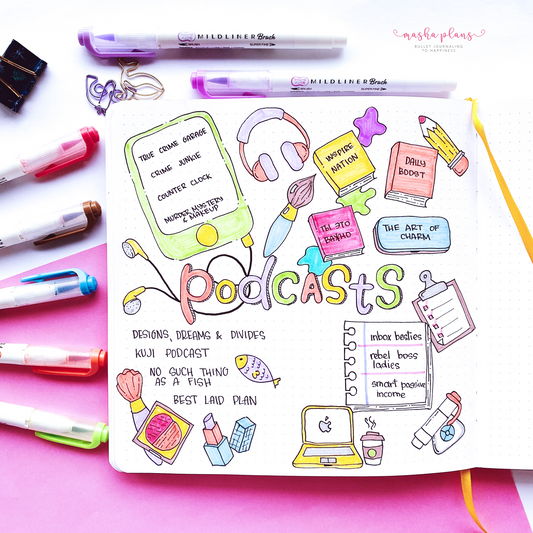 masha plans
BULLET JOURNALING
TO HAPPINESS
MILDLINER Brush
MILDLINER Brush
TRUE CRIME GARAGE
CRIME JUNKIE
COUNTER CLOCK
MURDER, MYSTERY
& MAKEUP
INSPIRE
NATION
DAILY
BOOST
ТЫ ЭТО
ВАЖНО
THE ART OF
CHARM
PODCASTS
DESIGNS, DREAMS & DIVIDES
KUJI PODCAST
NO SUCH THING
AS A FISH
BEST LAID PLAN
inbox besties
rebel boss
ladies
smart passive
income